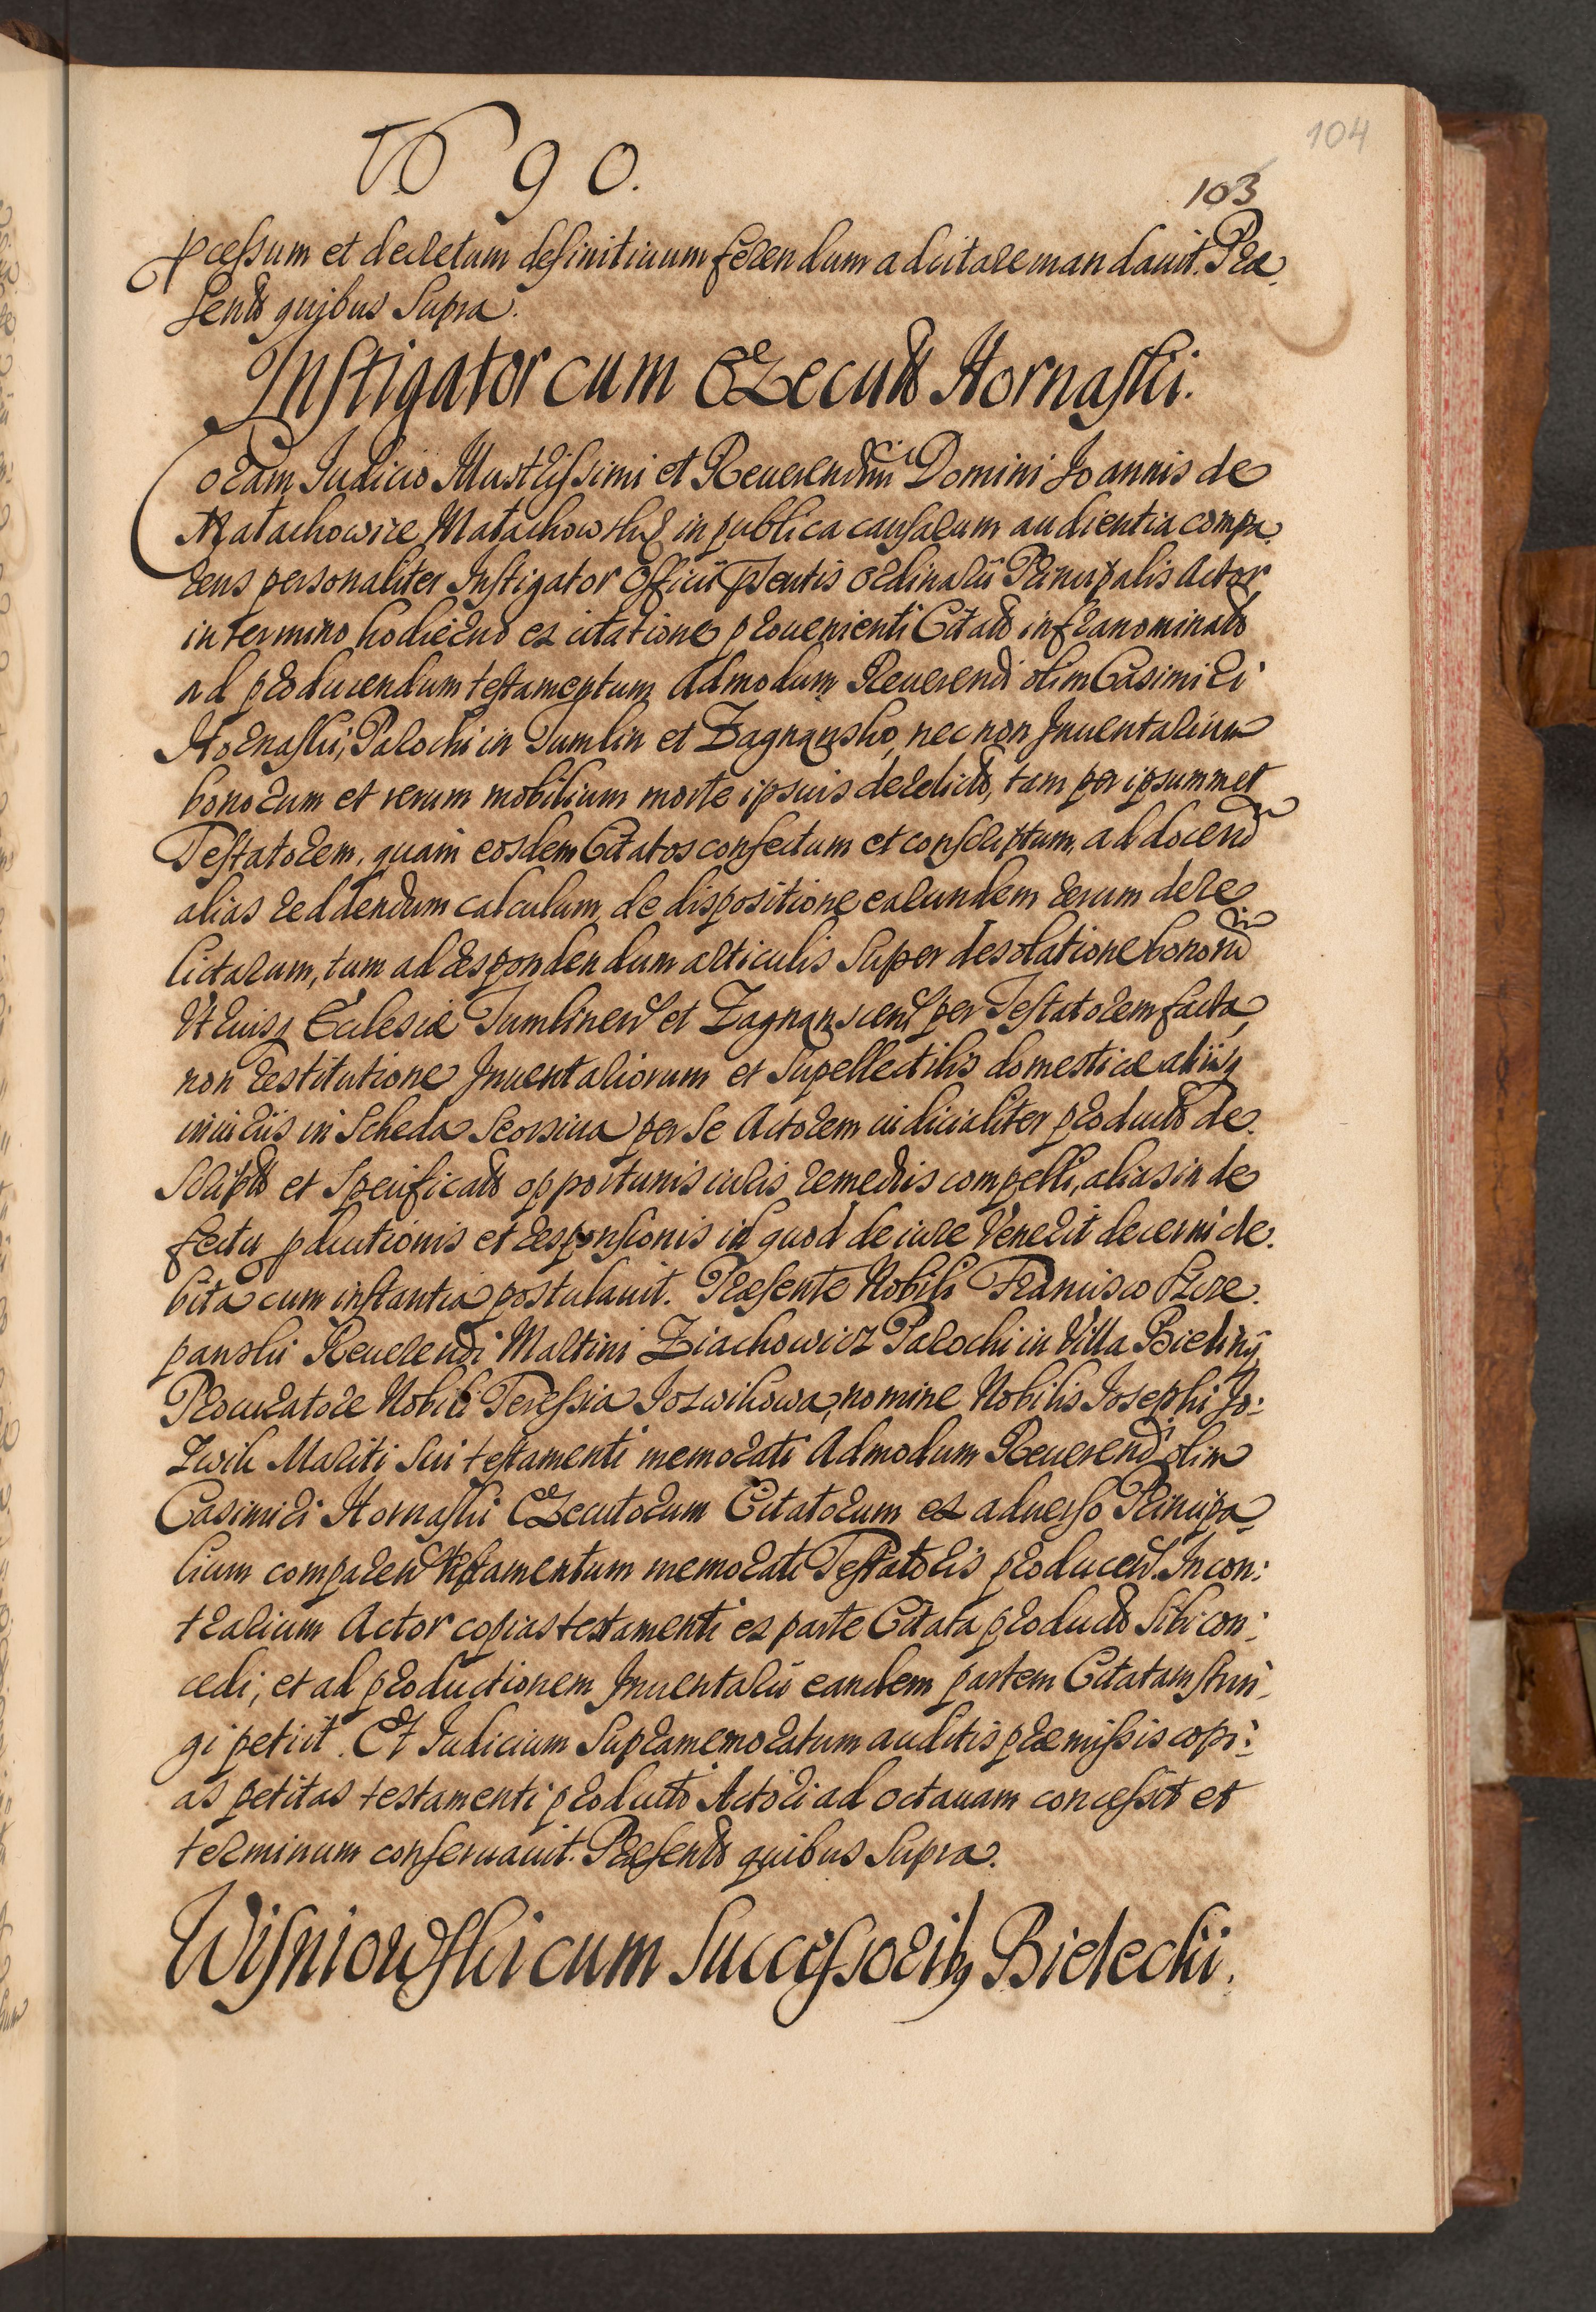 1690.
104
103
pcessum et decretum definitiuum ferendum adcitare mandauit. Præ
sentt quibus supra.
Instigator cum Executt Hornaski.
Coram Judicio Illustrissimi et Reuerendmi Domini Joannis de
Małachowice Małachowski in publica causarum audientia compa
rens personaliter Instigator Officii psentis Ordinarii Principalis Actor
in termino hodierno ex citatione prouenienti Citatt infranominatt
ad producendum testamentum Admodum Reuerendi olim Casimiri
Hornaski, Parochi in Tumlin et Zagnansko, nec non Inuentarium
bonorum et rerum mobilium morte ipsius derelictt, tam per ipsummet
Testatorem, quam eosdem Citatos confectum et conscriptum, ad docend
alias reddendum calculum de dispositione earundem rerum dere
lictarum, tum ad respondendum articulis super desolatione bonorū
Utriusq Eclesiæ Tumlinen et Zagnanscen per Testatorem facta,
non restitutione Inuentariorum et supellectilis domesticæ aliisq
iniuriis in Scheda Seorsiua per se Actorem iudicialiter productt de
scriptt et specificatt opportunis iuris remediis compelli, alias in de
fectu pductionis et responsionis id quod de iure Venerit decerni de
bita cum instantia postulauit. Præsente Nobili Francisco Szcze
panski Reuerendi Martini Ziachowicz Parochi in Villa Bieliny
Procuratore Nobili Teressia Jozwikowa, nomine Nobilis Josephi Jo:
zwik Mariti sui testamenti memorati Admodum Reuerend olim
Casimiri Hornaski Executorum Citatorum ex aduerso Principa
lium comparen testamentum memorati Testatoris producen. In con:
trarium Actor copias testamenti ex parte Citata productt sibi con:
cedi, et ad productionem Inuentarii eandem partem Citatam strin
gi petiit. Et Judicium supramemoratum auditis præmissis copi:
as petitas testamenti producti Actori ad octauam concessit et
terminum conseruauit. Præsentt quibus supra.
Wisniowski cum Successorib9 Bielecki.